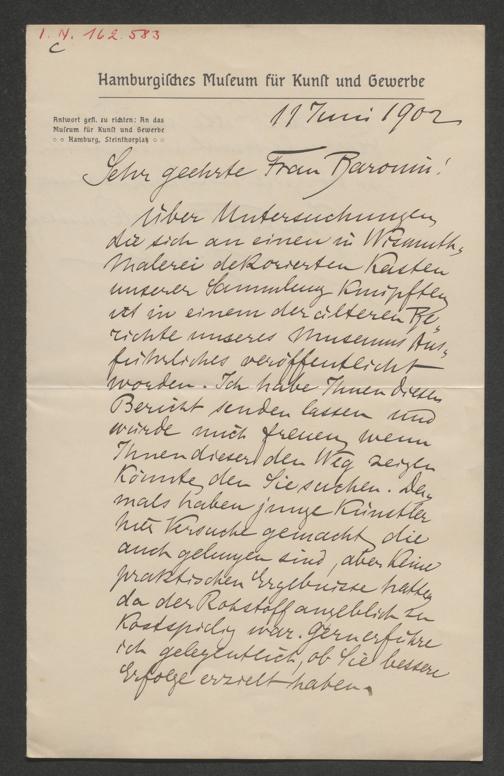 I. N. 162.583
C
Hamburgisches Museum für Kunst und Gewerbe
11 Juni 1902
Antwort gefl. zu richten: An das
Museum für Kunst und Gewerbe
Hamburg, Steinthorplatz
Sehr geehrte Frau Baronin!
Über Untersuchungen,
die sich an einen in Wismuth-
malerei dekorierten Kasten
unserer Sammlung knüpften,
ist in einem der älteren Be-
richte unseres Museums Aus-
führliches veröffentlicht
worden. Ich habe Ihnen diesen
Bericht senden lassen und
würde mich freuen, wenn
Ihnen dieser den Weg zeigen
könnte, den Sie suchen. Da-
mals haben junge Künstler
hier Versuche gemacht, die
auch gelungen sind, aber keine
praktischen Ergebnisse hatten,
da der Rohstoff angeblich zu
kostspielig war. Gern erführe
ich gelegentlich, ob Sie bessere
Erfolge erzielt haben.